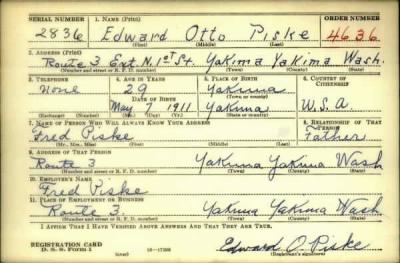 SERIAL NUMBER 1. NAME (Print) ORDER NUMBER
2836 Edward Otto Piske 4636
(First) (Middle) (Last)
2. ADDRESS (Print)
Route 3 Ext. N. 1st St. Yakima Yakima Wash.
(Number and street or R. F. D. number) (Town) (County) (State)
3. TELEPHONE 4. AGE IN YEARS 5. PLACE OF BIRTH 6. COUNTRY OF CITIZENSHIP
None 29 Yakima
DATE OF BIRTH (Town or county)
May 7 1911 Yakima U.S.A.
(Exchange) (Number) (Mo.) (Day) (Yr.) (State or country)
7. NAME OF PERSON WHO WILL ALWAYS KNOW YOUR ADDRESS 8. RELATIONSHIP OF THAT PERSON
Fred Piske Father
(Mr., Mrs., Miss) (First) (Middle) (Last)
9. ADDRESS OF THAT PERSON
Route 3 Yakima Yakima Wash
(Number and street or R. F. D. number) (Town) (County) (State)
10. EMPLOYER'S NAME
Fred Piske
11. PLACE OF EMPLOYMENT OR BUSINESS
Route 3 Yakima Yakima Wash
(Number and street or R. F. D. number) (Town) (County) (State)
I AFFIRM THAT I HAVE VERIFIED ABOVE ANSWERS AND THAT THEY ARE TRUE.
REGISTRATION CARD
D. S. S. Form 1 Edward O. Piske
(Registrant's signature)